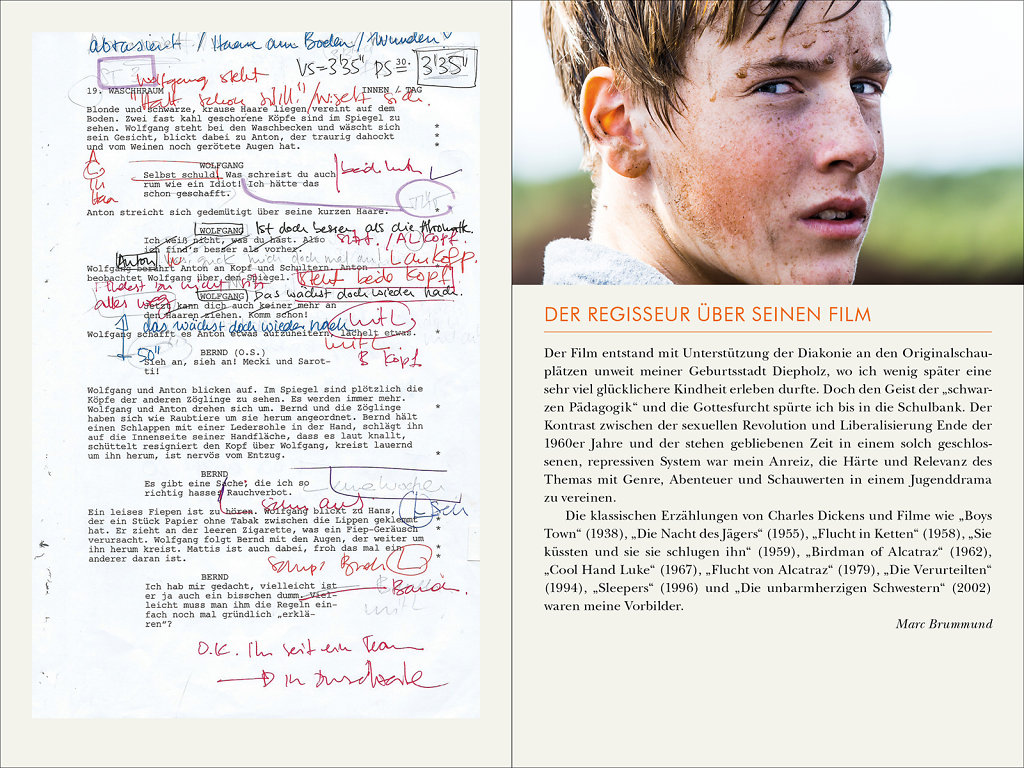 abrasiert / Haare am Boden / Wunden
VS=3'35" PS 30 = 3'35"
Wolfgang steht
"Halt schon still!" / wischt sich.
19. WASCHRAUM INNEN / TAG
Blonde und schwarze, krause Haare liegen vereint auf dem
Boden. Zwei fast kahl geschorene Köpfe sind im Spiegel zu
sehen. Wolfgang steht bei den Waschbecken und wäscht sich *
sein Gesicht, blickt dabei zu Anton, der traurig dahockt *
und vom Weinen noch gerötete Augen hat. *
WOLFGANG
Selbst schuld! Was schreist du auch
rum wie ein Idiot! Ich hätte das
schon geschafft.
Anton streicht sich gedemütigt über seine kurzen Haare. *
WOLFGANG Ist doch besser als die
Ich weiß nicht, was du hast. Also
ich find's besser als vorher.
Anton guck mich doch mal an!
Wolfgang berührt Anton an Kopf und Schultern. Anton
beobachtet Wolfgang über den Spiegel.
WOLFGANG Das wächst doch wieder nach.
alles weg
Jetzt kann dich auch keiner mehr an
den Haaren ziehen. Komm schon!
das wächst doch wieder nach
Wolfgang schafft es Anton etwas aufzuheitern, lächelt etwas.
50"
BERND (O.S.)
Sieh an, sieh an! Mecki und Sarot-
ti!
B Kopf
Wolfgang und Anton blicken auf. Im Spiegel sind plötzlich die
Köpfe der anderen Zöglinge zu sehen. Es werden immer mehr.
Wolfgang und Anton drehen sich um. Bernd und die Zöglinge *
haben sich wie Raubtiere um sie herum angeordnet. Bernd hält
einen Schlappen mit einer Ledersohle in der Hand, schlägt ihn
auf die Innenseite seiner Handfläche, dass es laut knallt,
schüttelt resigniert den Kopf über Wolfgang, kreist lauernd
um ihn herum, ist nervös vom Entzug. *
BERND
Es gibt eine Sache, die ich so
richtig hasse: Rauchverbot.
Ein leises Fiepen ist zu hören. Wolfgang blickt zu Hans,
der ein Stück Papier ohne Tabak zwischen die Lippen geklemmt
hat. Er zieht an der leeren Zigarette, was ein Fiep-Geräusch
verursacht. Wolfgang folgt Bernd mit den Augen, der weiter um
ihn herum kreist. Mattis ist auch dabei, froh das mal ein *
anderer daran ist. *
BERND
Ich hab mir gedacht, vielleicht ist
er ja auch ein bisschen dumm. Viel-
leicht muss man ihm die Regeln ein-
fach noch mal gründlich „erklä-
ren“?
O.K. Ihr seit ein Team
DER REGISSEUR ÜBER SEINEN FILM
Der Film entstand mit Unterstützung der Diakonie an den Originalschau-
plätzen unweit meiner Geburtsstadt Diepholz, wo ich wenig später eine
sehr viel glücklichere Kindheit erleben durfte. Doch den Geist der „schwar-
zen Pädagogik“ und die Gottesfurcht spürte ich bis in die Schulbank. Der
Kontrast zwischen der sexuellen Revolution und Liberalisierung Ende der
1960er Jahre und der stehen gebliebenen Zeit in einem solch geschlos-
senen, repressiven System war mein Anreiz, die Härte und Relevanz des
Themas mit Genre, Abenteuer und Schauwerten in einem Jugenddrama
zu vereinen.
Die klassischen Erzählungen von Charles Dickens und Filme wie „Boys
Town“ (1938), „Die Nacht des Jägers“ (1955), „Flucht in Ketten“ (1958), „Sie
küssten und sie sie schlugen ihn“ (1959), „Birdman of Alcatraz“ (1962),
„Cool Hand Luke“ (1967), „Flucht von Alcatraz“ (1979), „Die Verurteilten“
(1994), „Sleepers“ (1996) und „Die unbarmherzigen Schwestern“ (2002)
waren meine Vorbilder.
Marc Brummund